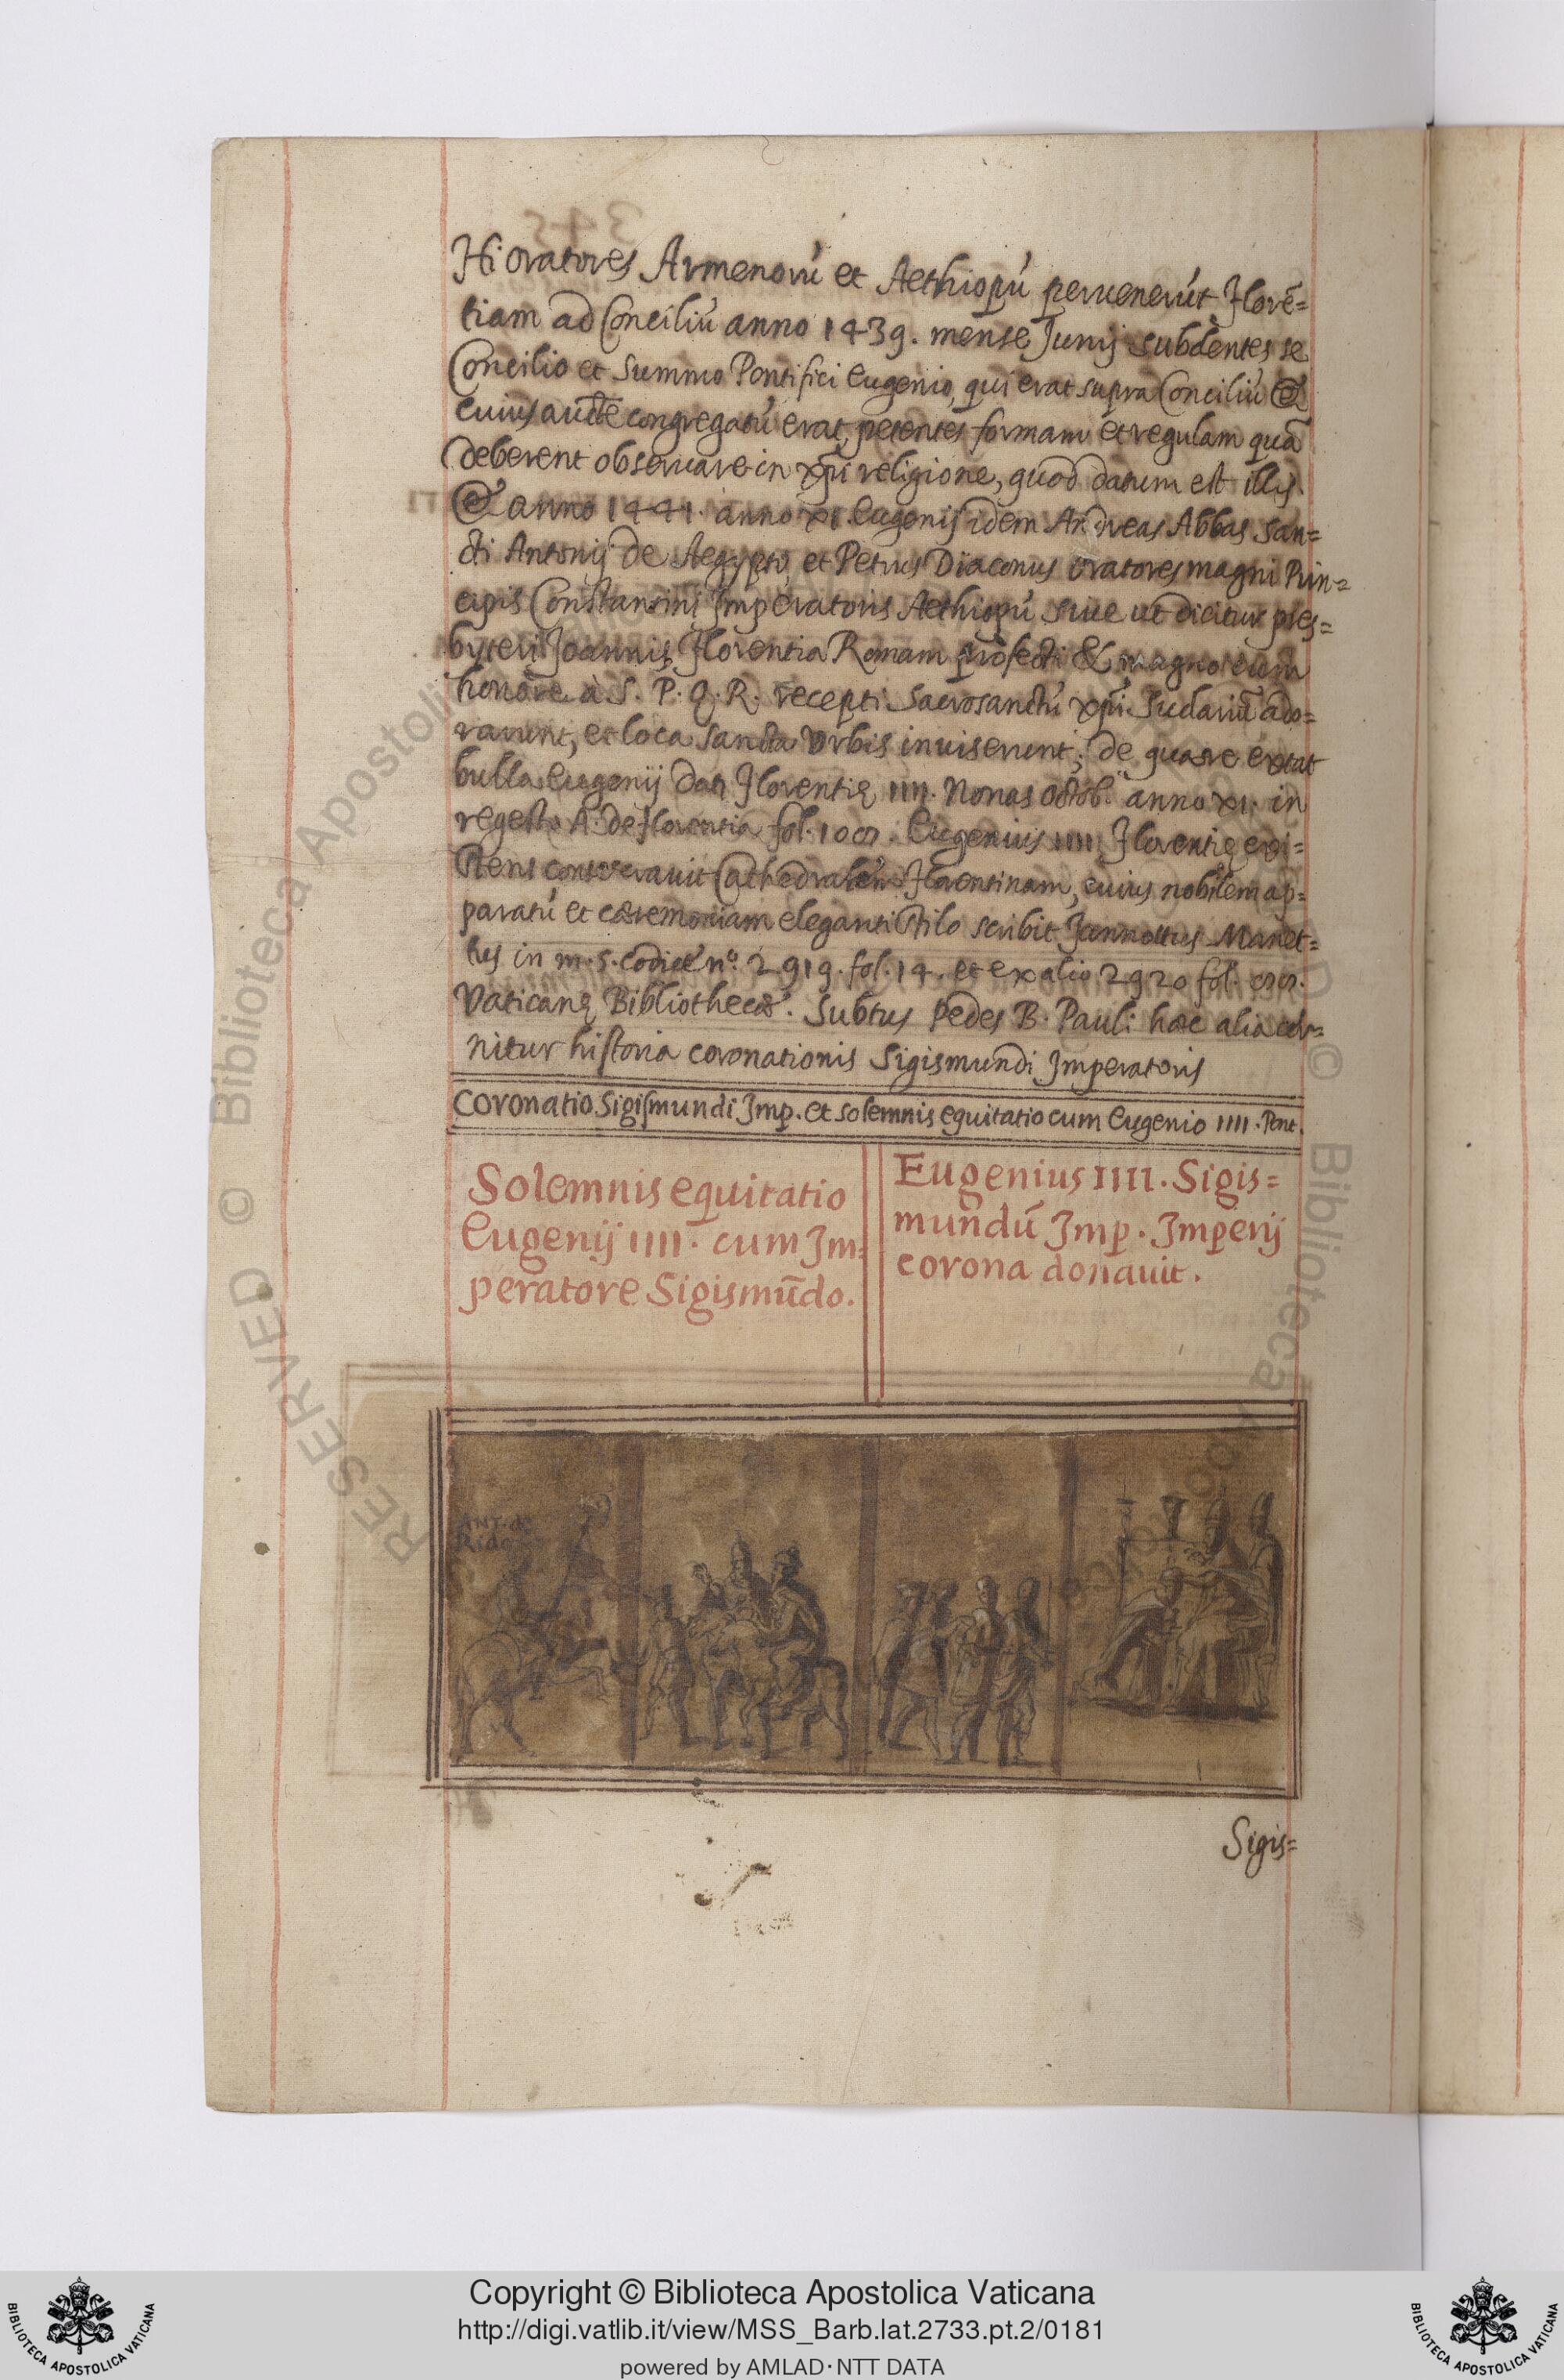 Hi oratores Armenorú et Aethiopú peruenerút Florē=
tiam ad Conciliú anno 1439. mense Junij subdentes se
Concilio et Summo Pontifici Eugenio, qui erat supra Conciliú &
cuius auctē congregatú erat, petentes formam et regulam quā
deberent obseruare in xp̄i religione, quod datum est illis.
& anno 1441. anno XI. Eugenij idem Andreas Abbas San=
cti Antonij de Aegypto, et Petrus Diaconus oratores magni Prin=
cipis Constantini Imperatoris Aethiopú siue ut dicitur pres=
byteri Joannis, Florentia Romam profecti & magno cum
honore à S. P. Q. R. recepti Sacrosanctú xp̄i Sudariū ado=
rarunt, et loca sancta Vrbis inuiserunt; de qua re extat
bulla Eugenij dat. Florentię IIII. Nonas Octob. anno XI. in
regesto A. de Florentia fol. Eugenius IIII Florentię exi=
stens consecrauit Cathedralem Florentinam, cuius nobilem ap=
paratú et cæremoniam eleganti stilo scribit Jannottus Manet=
tus in m.s. codice nº. 2919. fol. 14. et ex alio 2920 fol.
Vaticanę Bibliothecæ. Subtus pedes B. Pauli hæc alia cer=
nitur historia coronationis Sigismundi Imperatoris
Coronatio Sigismundi Imp. et solemnis equitatio cum Eugenio IIII. Pont.
Solemnis equitatio
Eugenij IIII. cum Im=
peratore Sigismūdo.
Eugenius IIII. Sigis=
mundū Imp. Imperij
corona donauit.
ANT. de
Rido
Sigis=
RESERVED © Biblioteca Apostolica
© Biblioteca
Copyright © Biblioteca Apostolica Vaticana
http://digi.vatlib.it/view/MSS_Barb.lat.2733.pt.2/0181
powered by AMLAD·NTT DATA
BIBLIOTECA APOSTOLICA VATICANA
BIBLIOTECA APOSTOLICA VATICANA